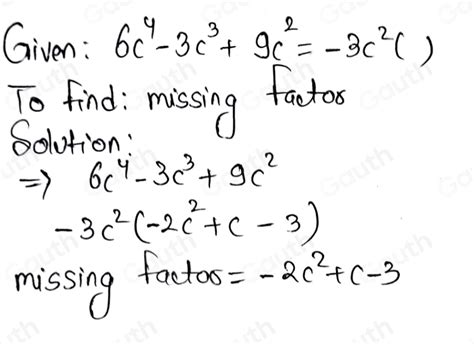 Given: 6c⁴-3c³+ 9c² = -3c²( )
To find: missing factos
Solution:
=> 6c⁴-3c³+9c²
-3c²(-2c²+c-3)
missing factos= -2c²+c-3